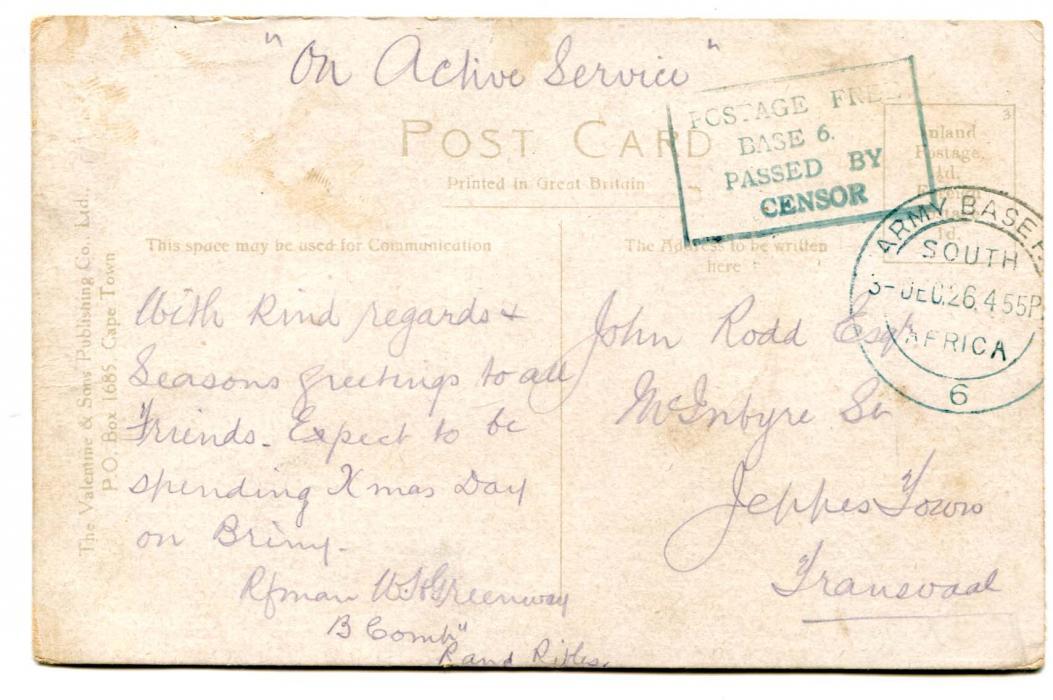 "On Active Service"
POST CARD
Printed in Great Britain
POSTAGE FREE
BASE 6.
PASSED BY
CENSOR
3
Inland
Postage,
ARMY BASE P.
SOUTH
3-DEC.26.4 55P
AFRICA
6
This space may be used for Communication
The Address to be written
here
The Valentine & Sons Publishing Co., Ltd.,
P.O. Box 1685, Cape Town
With kind regards &
Seasons greetings to all
Friends. Expect to be
spending Xmas Day
on Briny.
Rfman Greenway
B Comp"
Rand Rifles.
John Rodd Esqr
McIntyre St
Jeppes Town
Transvaal